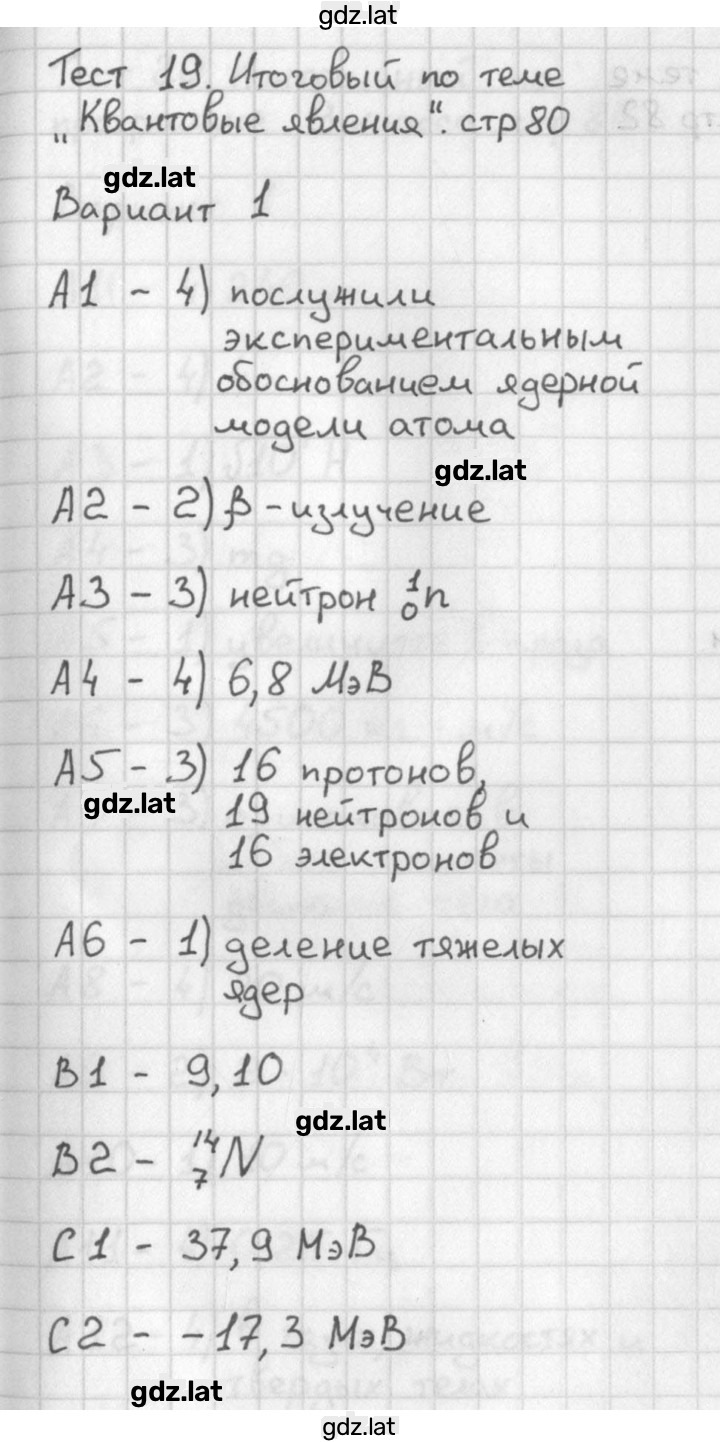 gdz.lat
Тест 19. Итоговый по теме
„Квантовые явления“. стр 80
gdz.lat
Вариант 1
А1 - 4) послужили
экспериментальным
обоснованием ядерной
модели атома
gdz.lat
А2 - 2) β - излучение
А3 - 3) нейтрон ¹₀n
А4 - 4) 6,8 МэВ
А5 - 3) 16 протонов,
gdz.lat
19 нейтронов и
16 электронов
А6 - 1) деление тяжелых
ядер
В1 - 9, 10
gdz.lat
В2 - ¹⁴₇N
С1 - 37,9 МэВ
С2 - -17,3 МэВ
gdz.lat
gdz.lat